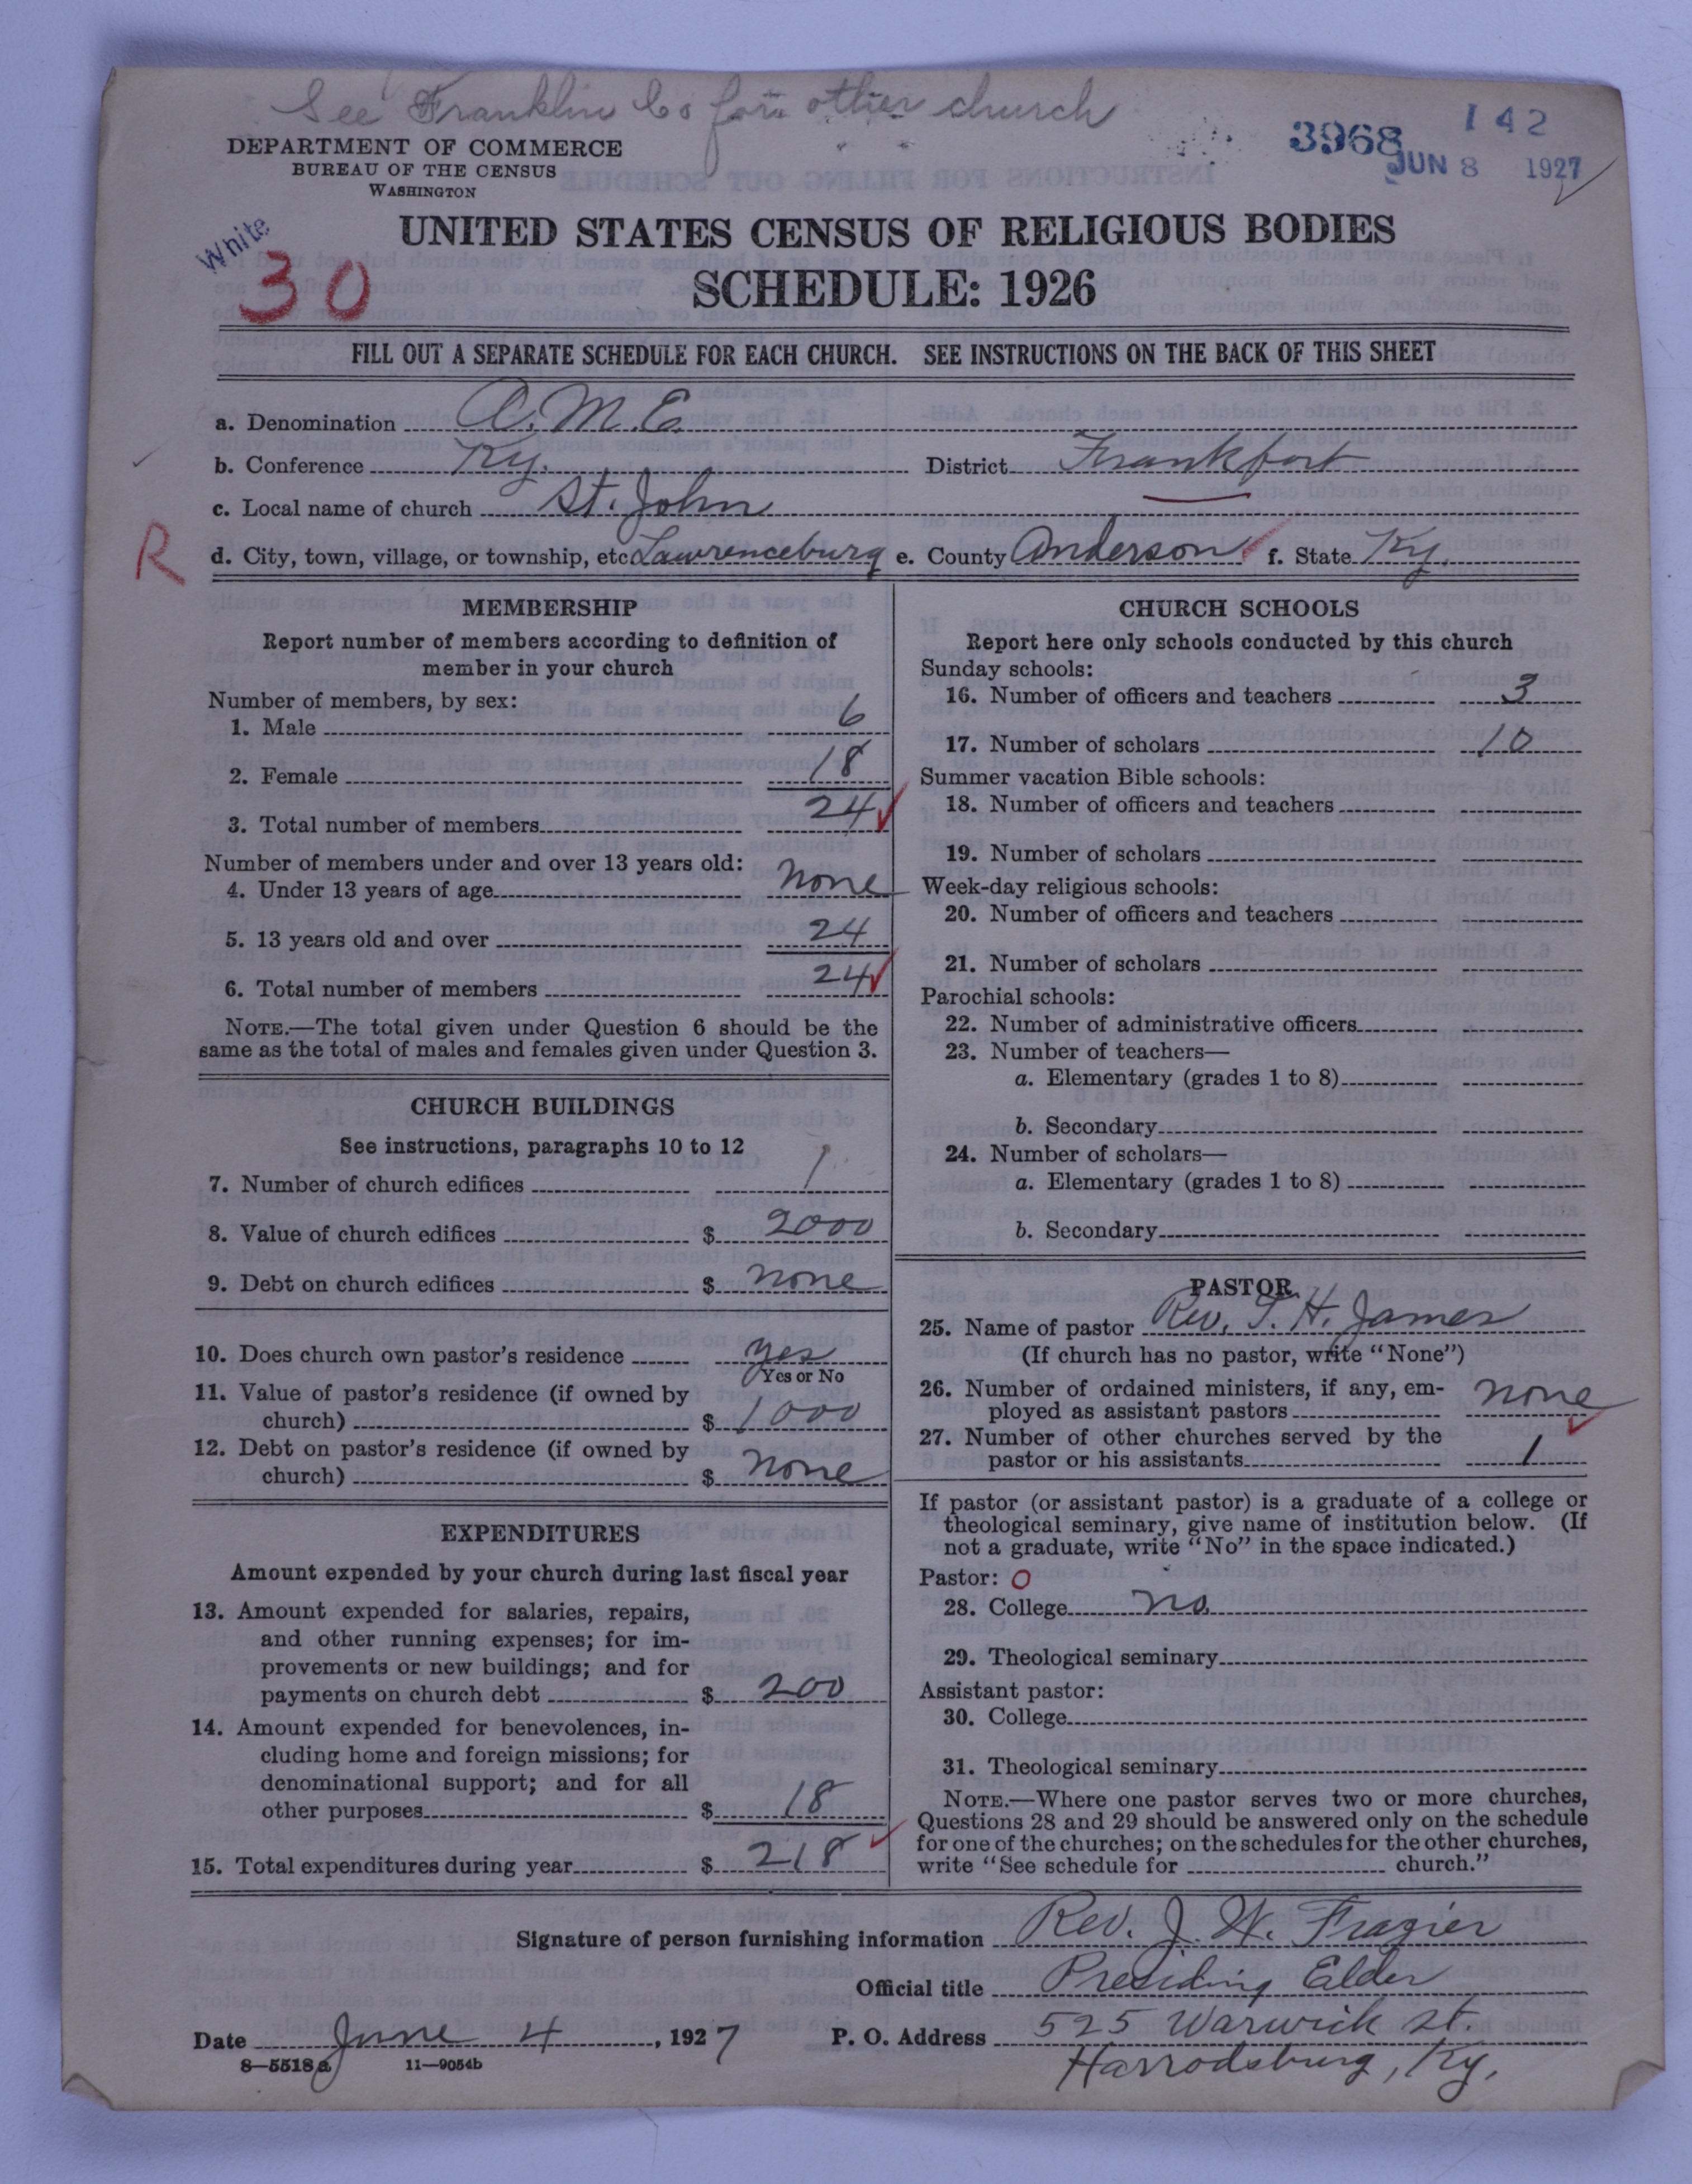 See Franklin Co for other church
DEPARTMENT OF COMMERCE
BUREAU OF THE CENSUS
WASHINGTON
3968
142
JUN 8 1927
White
30
UNITED STATES CENSUS OF RELIGIOUS BODIES
SCHEDULE: 1926
FILL OUT A SEPARATE SCHEDULE FOR EACH CHURCH. SEE INSTRUCTIONS ON THE BACK OF THIS SHEET
a. Denomination A.M.E.
b. Conference Ky. District Frankfort
c. Local name of church St. John
R
d. City, town, village, or township, etc Lawrenceburg e. County Anderson f. State Ky.
MEMBERSHIP
Report number of members according to definition of
member in your church
Number of members, by sex:
1. Male 6
2. Female 18
3. Total number of members 24
Number of members under and over 13 years old:
4. Under 13 years of age none
5. 13 years old and over 24
6. Total number of members 24
NOTE.—The total given under Question 6 should be the
same as the total of males and females given under Question 3.
CHURCH BUILDINGS
See instructions, paragraphs 10 to 12
7. Number of church edifices 1
8. Value of church edifices $ 2000
9. Debt on church edifices $ none
10. Does church own pastor's residence yes
Yes or No
11. Value of pastor's residence (if owned by
church) $ 1000
12. Debt on pastor's residence (if owned by
church) $ none
EXPENDITURES
Amount expended by your church during last fiscal year
13. Amount expended for salaries, repairs,
and other running expenses; for im-
provements or new buildings; and for
payments on church debt $ 200
14. Amount expended for benevolences, in-
cluding home and foreign missions; for
denominational support; and for all
other purposes $ 18
15. Total expenditures during year $ 218
CHURCH SCHOOLS
Report here only schools conducted by this church
Sunday schools:
16. Number of officers and teachers 3
17. Number of scholars 10
Summer vacation Bible schools:
18. Number of officers and teachers
19. Number of scholars
Week-day religious schools:
20. Number of officers and teachers
21. Number of scholars
Parochial schools:
22. Number of administrative officers
23. Number of teachers—
a. Elementary (grades 1 to 8)
b. Secondary
24. Number of scholars—
a. Elementary (grades 1 to 8)
b. Secondary
PASTOR
25. Name of pastor Rev. T. H. James
(If church has no pastor, write "None")
26. Number of ordained ministers, if any, em-
ployed as assistant pastors none
27. Number of other churches served by the
pastor or his assistants 1
If pastor (or assistant pastor) is a graduate of a college or
theological seminary, give name of institution below. (If
not a graduate, write "No" in the space indicated.)
Pastor: O
28. College no
29. Theological seminary
Assistant pastor:
30. College
31. Theological seminary
NOTE.—Where one pastor serves two or more churches,
Questions 28 and 29 should be answered only on the schedule
for one of the churches; on the schedules for the other churches,
write "See schedule for church."
Signature of person furnishing information Rev. J. W. Frazier
Official title Presiding Elder
Date June 4, 1927 P. O. Address 525 Warwick St.
8—5518a 11—9054b Harrodsburg, Ky.